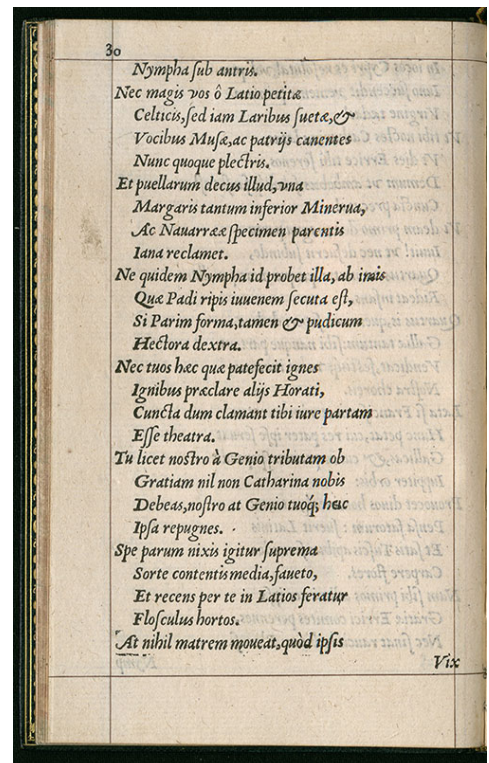 30
Nympha ſub antris.
Nec magis vos ô Latio petitæ
Celticis, ſed iam Laribus ſuetæ, &
Vocibus Muſæ, ac patrijs canentes
Nunc quoque plectris.
Et puellarum decus illud, vna
Margaris tantum inferior Minerua,
Ac Nauarrææ ſpecimen parentis
Iana reclamet.
Ne quidem Nympha id probet illa, ab imis
Quæ Padi ripis iuuenem ſecuta eſt,
Si Parim forma, tamen & pudicum
Hectora dextra.
Nec tuos hæc quæ patefecit ignes
Ignibus præclare alijs Horati,
Cuncta dum clamant tibi iure partam
Eſſe theatra.
Tu licet noſtro à Genio tributam ob
Gratiam nil non Catharina nobis
Debeas, noſtro at Genio tuoq́; hæc
Ipſa repugnes.
Spe parum nixis igitur ſuprema
Sorte contentis media, faueto,
Et recens per te in Latios feratur
Floſculus hortos.
At nihil matrem moueat, quòd ipſis
Vix